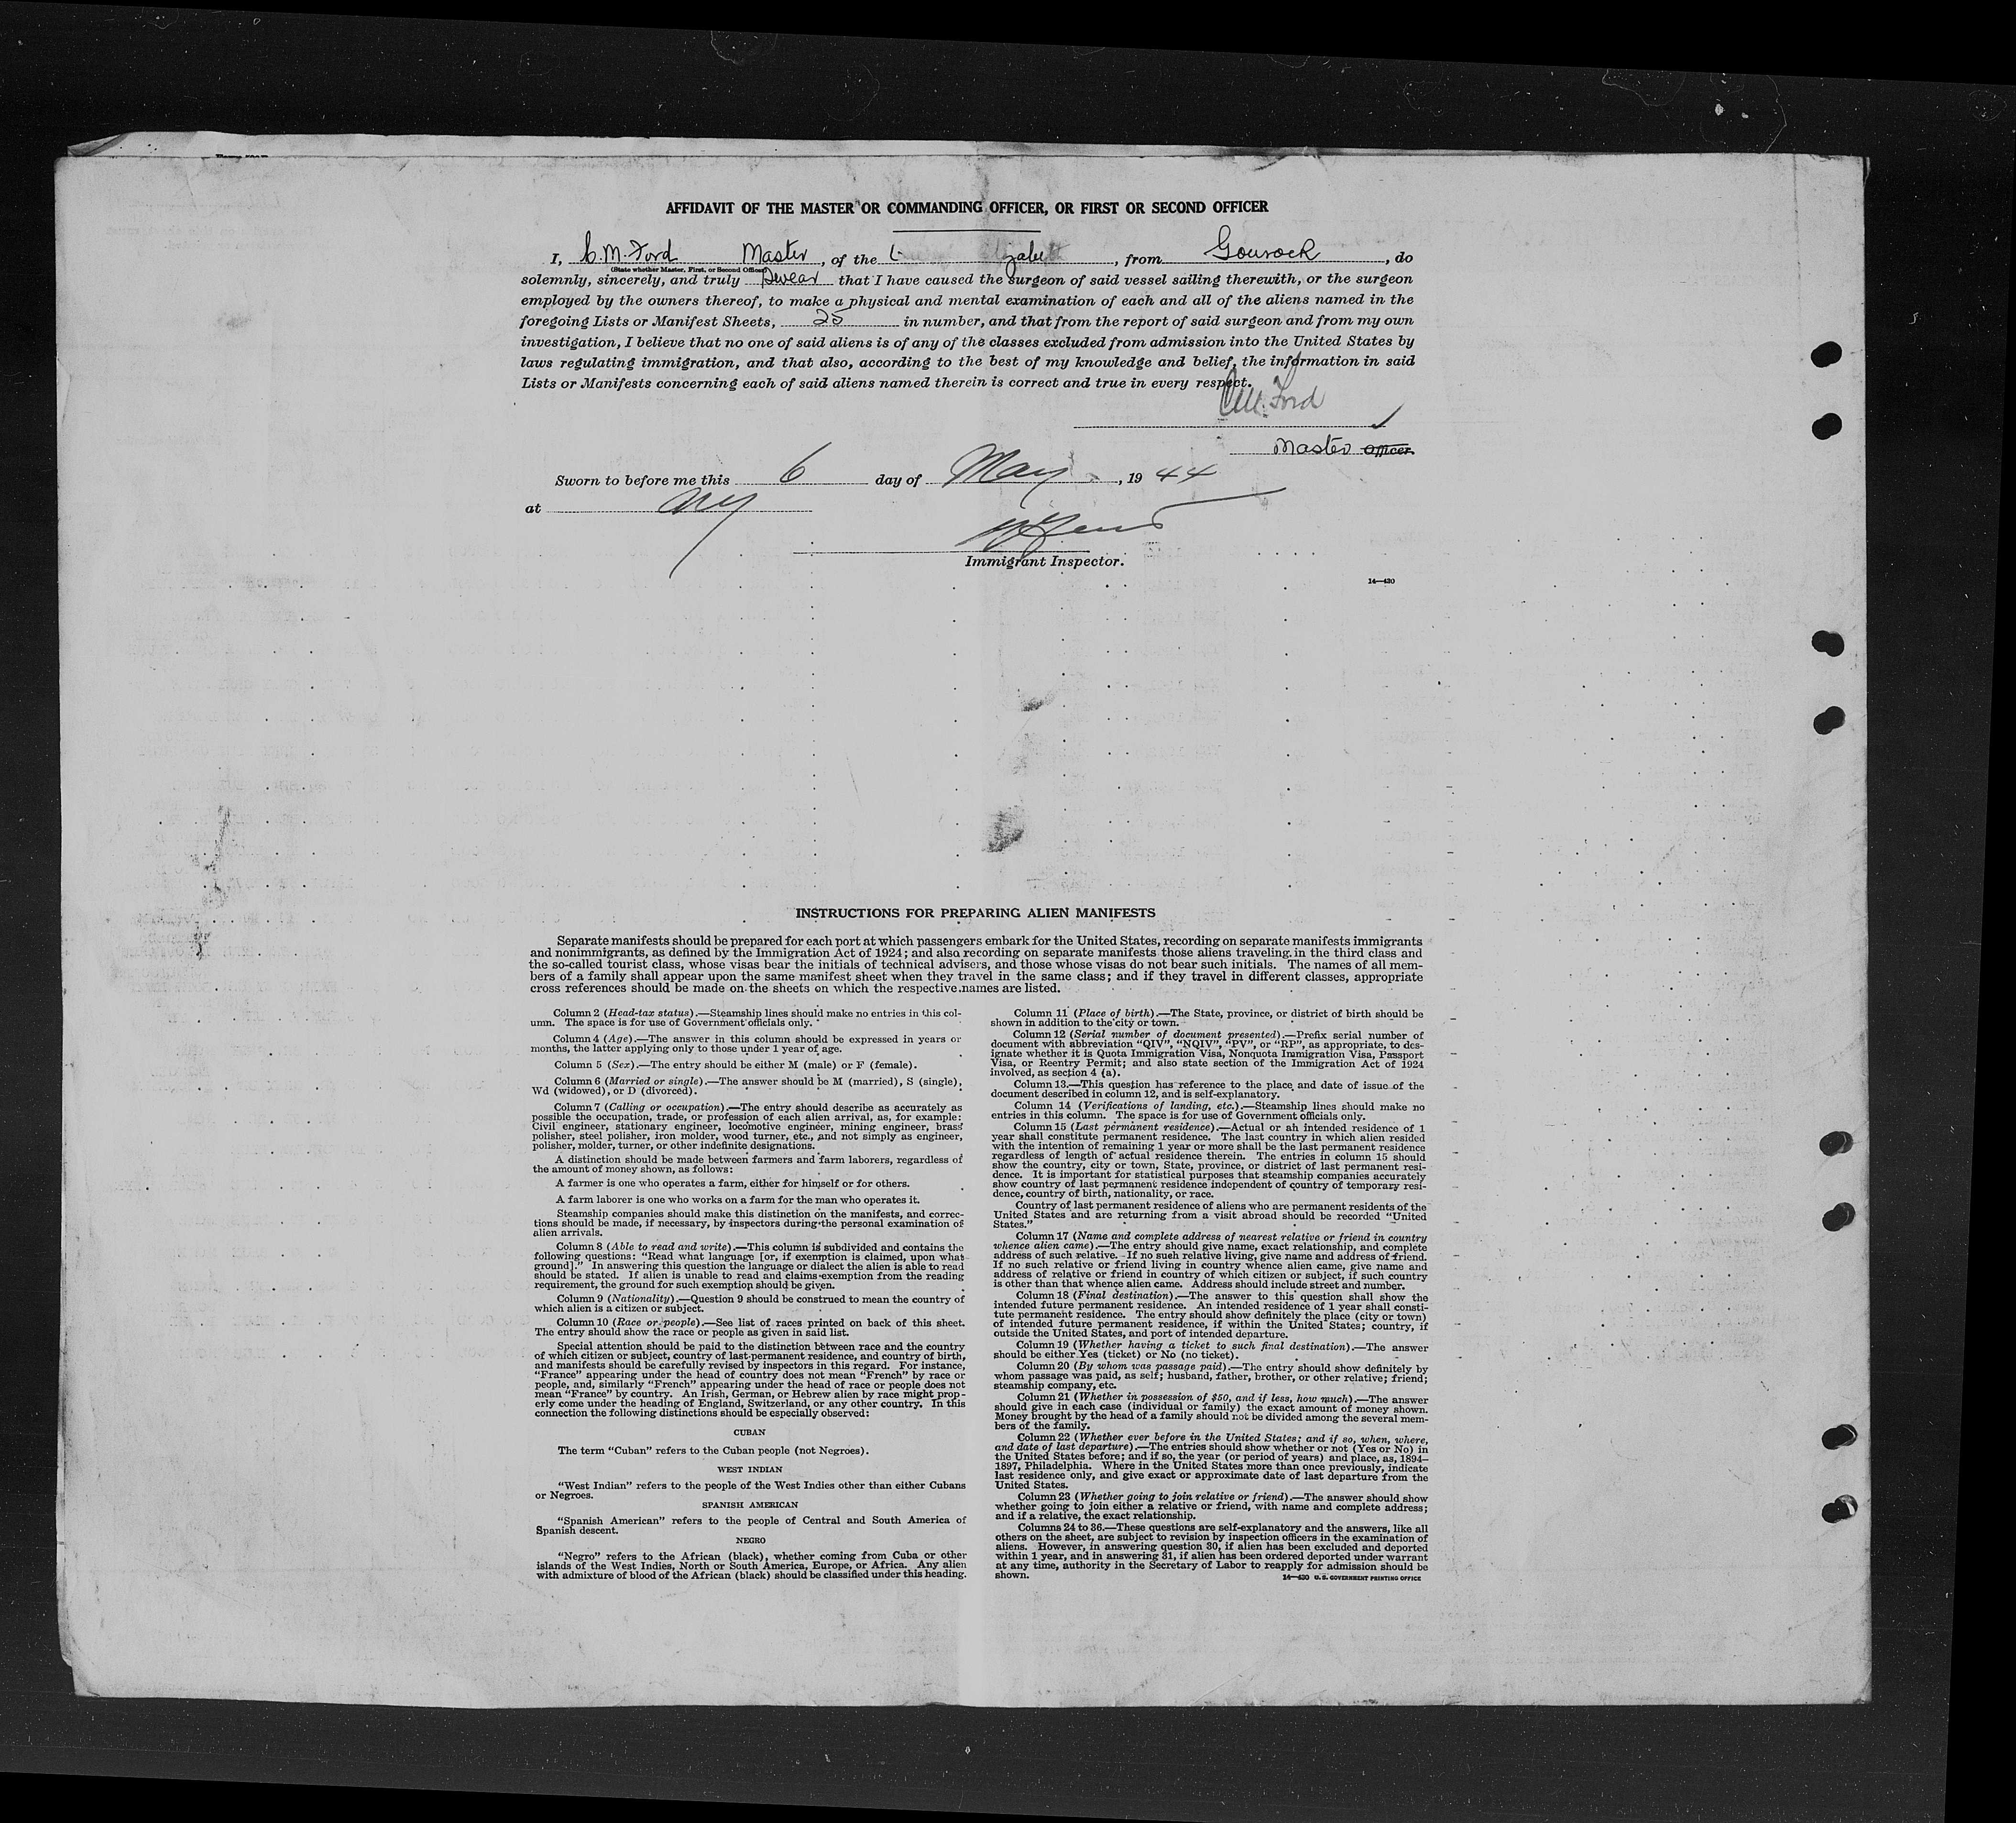 AFFIDAVIT OF THE MASTER OR COMMANDING OFFICER, OR FIRST OR SECOND OFFICER
I, C.M. Ford Master, of the Elizabeth, from Gourock, do
(State whether Master, First, or Second Officer)
solemnly, sincerely, and truly Swear that I have caused the surgeon of said vessel sailing therewith, or the surgeon
employed by the owners thereof, to make a physical and mental examination of each and all of the aliens named in the
foregoing Lists or Manifest Sheets, 25 in number, and that from the report of said surgeon and from my own
investigation, I believe that no one of said aliens is of any of the classes excluded from admission into the United States by
laws regulating immigration, and that also, according to the best of my knowledge and belief, the information in said
Lists or Manifests concerning each of said aliens named therein is correct and true in every respect.
C.M. Ford
Master Officer.
Sworn to before me this 6 day of May, 1944
at NY
Immigrant Inspector.
14—430
INSTRUCTIONS FOR PREPARING ALIEN MANIFESTS
Separate manifests should be prepared for each port at which passengers embark for the United States, recording on separate manifests immigrants
and nonimmigrants, as defined by the Immigration Act of 1924; and also recording on separate manifests those aliens traveling in the third class and
the so-called tourist class, whose visas bear the initials of technical advisers, and those whose visas do not bear such initials. The names of all mem-
bers of a family shall appear upon the same manifest sheet when they travel in the same class; and if they travel in different classes, appropriate
cross references should be made on the sheets on which the respective names are listed.
Column 2 (Head-tax status).—Steamship lines should make no entries in this col-
umn. The space is for use of Government officials only.
Column 4 (Age).—The answer in this column should be expressed in years or
months, the latter applying only to those under 1 year of age.
Column 5 (Sex).—The entry should be either M (male) or F (female).
Column 6 (Married or single).—The answer should be M (married), S (single),
Wd (widowed), or D (divorced).
Column 7 (Calling or occupation).—The entry should describe as accurately as
possible the occupation, trade, or profession of each alien arrival, as, for example:
Civil engineer, stationary engineer, locomotive engineer, mining engineer, brass
polisher, steel polisher, iron molder, wood turner, etc., and not simply as engineer,
polisher, molder, turner, or other indefinite designations.
A distinction should be made between farmers and farm laborers, regardless of
the amount of money shown, as follows:
A farmer is one who operates a farm, either for himself or for others.
A farm laborer is one who works on a farm for the man who operates it.
Steamship companies should make this distinction on the manifests, and correc-
tions should be made, if necessary, by inspectors during the personal examination of
alien arrivals.
Column 8 (Able to read and write).—This column is subdivided and contains the
following questions: "Read what language [or, if exemption is claimed, upon what
ground]." In answering this question the language or dialect the alien is able to read
should be stated. If alien is unable to read and claims exemption from the reading
requirement, the ground for such exemption should be given.
Column 9 (Nationality).—Question 9 should be construed to mean the country of
which alien is a citizen or subject.
Column 10 (Race or people).—See list of races printed on back of this sheet.
The entry should show the race or people as given in said list.
Special attention should be paid to the distinction between race and the country
of which citizen or subject, country of last permanent residence, and country of birth,
and manifests should be carefully revised by inspectors in this regard. For instance,
"France" appearing under the head of country does not mean "French" by race or
people, and, similarly "French" appearing under the head of race or people does not
mean "France" by country. An Irish, German, or Hebrew alien by race might prop-
erly come under the heading of England, Switzerland, or any other country. In this
connection the following distinctions should be especially observed:
CUBAN
The term "Cuban" refers to the Cuban people (not Negroes).
WEST INDIAN
"West Indian" refers to the people of the West Indies other than either Cubans
or Negroes.
SPANISH AMERICAN
"Spanish American" refers to the people of Central and South America of
Spanish descent.
NEGRO
"Negro" refers to the African (black), whether coming from Cuba or other
islands of the West Indies, North or South America, Europe, or Africa. Any alien
with admixture of blood of the African (black) should be classified under this heading.
Column 11 (Place of birth).—The State, province, or district of birth should be
shown in addition to the city or town.
Column 12 (Serial number of document presented).—Prefix serial number of
document with abbreviation "QIV", "NQIV", "PV", or "RP", as appropriate, to des-
ignate whether it is Quota Immigration Visa, Nonquota Immigration Visa, Passport
Visa, or Reentry Permit; and also state section of the Immigration Act of 1924
involved, as section 4 (a).
Column 13.—This question has reference to the place and date of issue of the
document described in column 12, and is self-explanatory.
Column 14 (Verifications of landing, etc.).—Steamship lines should make no
entries in this column. The space is for use of Government officials only.
Column 15 (Last permanent residence).—Actual or an intended residence of 1
year shall constitute permanent residence. The last country in which alien resided
with the intention of remaining 1 year or more shall be the last permanent residence
regardless of length of actual residence therein. The entries in column 15 should
show the country, city or town, State, province, or district of last permanent resi-
dence. It is important for statistical purposes that steamship companies accurately
show country of last permanent residence independent of country of temporary resi-
dence, country of birth, nationality, or race.
Country of last permanent residence of aliens who are permanent residents of the
United States and are returning from a visit abroad should be recorded "United
States."
Column 17 (Name and complete address of nearest relative or friend in country
whence alien came).—The entry should give name, exact relationship, and complete
address of such relative. If no such relative living, give name and address of friend.
If no such relative or friend living in country whence alien came, give name and
address of relative or friend in country of which citizen or subject, if such country
is other than that whence alien came. Address should include street and number.
Column 18 (Final destination).—The answer to this question shall show the
intended future permanent residence. An intended residence of 1 year shall consti-
tute permanent residence. The entry should show definitely the place (city or town)
of intended future permanent residence, if within the United States; country, if
outside the United States, and port of intended departure.
Column 19 (Whether having a ticket to such final destination).—The answer
should be either Yes (ticket) or No (no ticket).
Column 20 (By whom was passage paid).—The entry should show definitely by
whom passage was paid, as self; husband, father, brother, or other relative; friend;
steamship company, etc.
Column 21 (Whether in possession of $50, and if less, how much).—The answer
should give in each case (individual or family) the exact amount of money shown.
Money brought by the head of a family should not be divided among the several mem-
bers of the family.
Column 22 (Whether ever before in the United States; and if so, when, where,
and date of last departure).—The entries should show whether or not (Yes or No) in
the United States before; and if so, the year (or period of years) and place, as, 1894–
1897, Philadelphia. Where in the United States more than once previously, indicate
last residence only, and give exact or approximate date of last departure from the
United States.
Column 23 (Whether going to join relative or friend).—The answer should show
whether going to join either a relative or friend, with name and complete address;
and if a relative, the exact relationship.
Columns 24 to 36.—These questions are self-explanatory and the answers, like all
others on the sheet, are subject to revision by inspection officers in the examination of
aliens. However, in answering question 30, if alien has been excluded and deported
within 1 year, and in answering 31, if alien has been ordered deported under warrant
at any time, authority in the Secretary of Labor to reapply for admission should be
shown.
14—430 U. S. GOVERNMENT PRINTING OFFICE